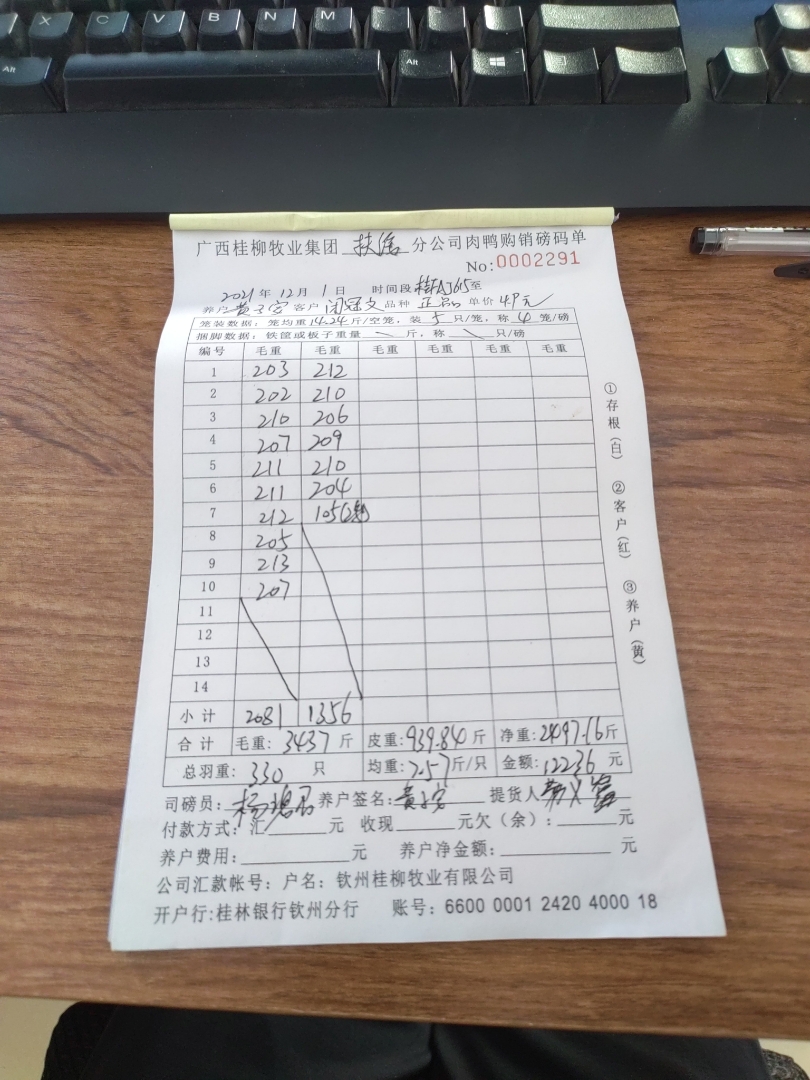 X C V B N M
Alt Alt
广西桂柳牧业集团 扶绥 分公司肉鸭购销磅码单
No:0002291
2021年12月1日 时间段 至
养户 客户 品种 正品 单价 4.9元
笼装数据:笼均重14.24斤/空笼,装5只/笼,称4笼/磅
捆脚数据:铁筐或板子重量 \ 斤,称 \ 只/磅
编号 毛重 毛重 毛重 毛重 毛重 毛重
1 203 212
2 202 210
3 210 206
4 207 209
5 211 210
6 211 204
7 212 105(2笼)
8 205
9 213
10 207
11
12
13
14
小计 2081 1356
合计 毛重:3437斤 皮重:939.84斤 净重:2497.16斤
总羽重:330只 均重:7.57斤/只 金额:12236元
司磅员: 养户签名: 提货人
付款方式:汇 元 收现 元欠(余): 元
养户费用: 元 养户净金额: 元
公司汇款帐号:户名:钦州桂柳牧业有限公司
开户行:桂林银行钦州分行 账号:6600 0001 2420 4000 18
①存根(白)
②客户(红)
③养户(黄)